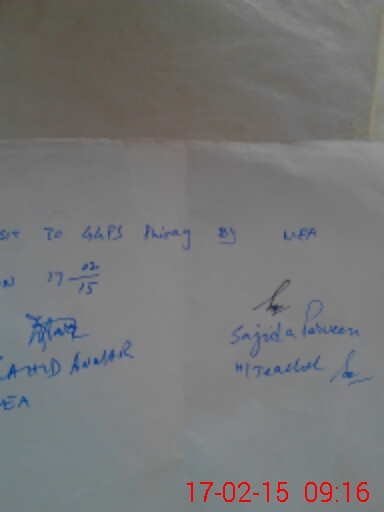 TO GGPS Phiray By MEA
ON 17-02/15
ZAHID ANWAR
Sajida Parveen
H/Teacher
MEA
17-02-15 09:16